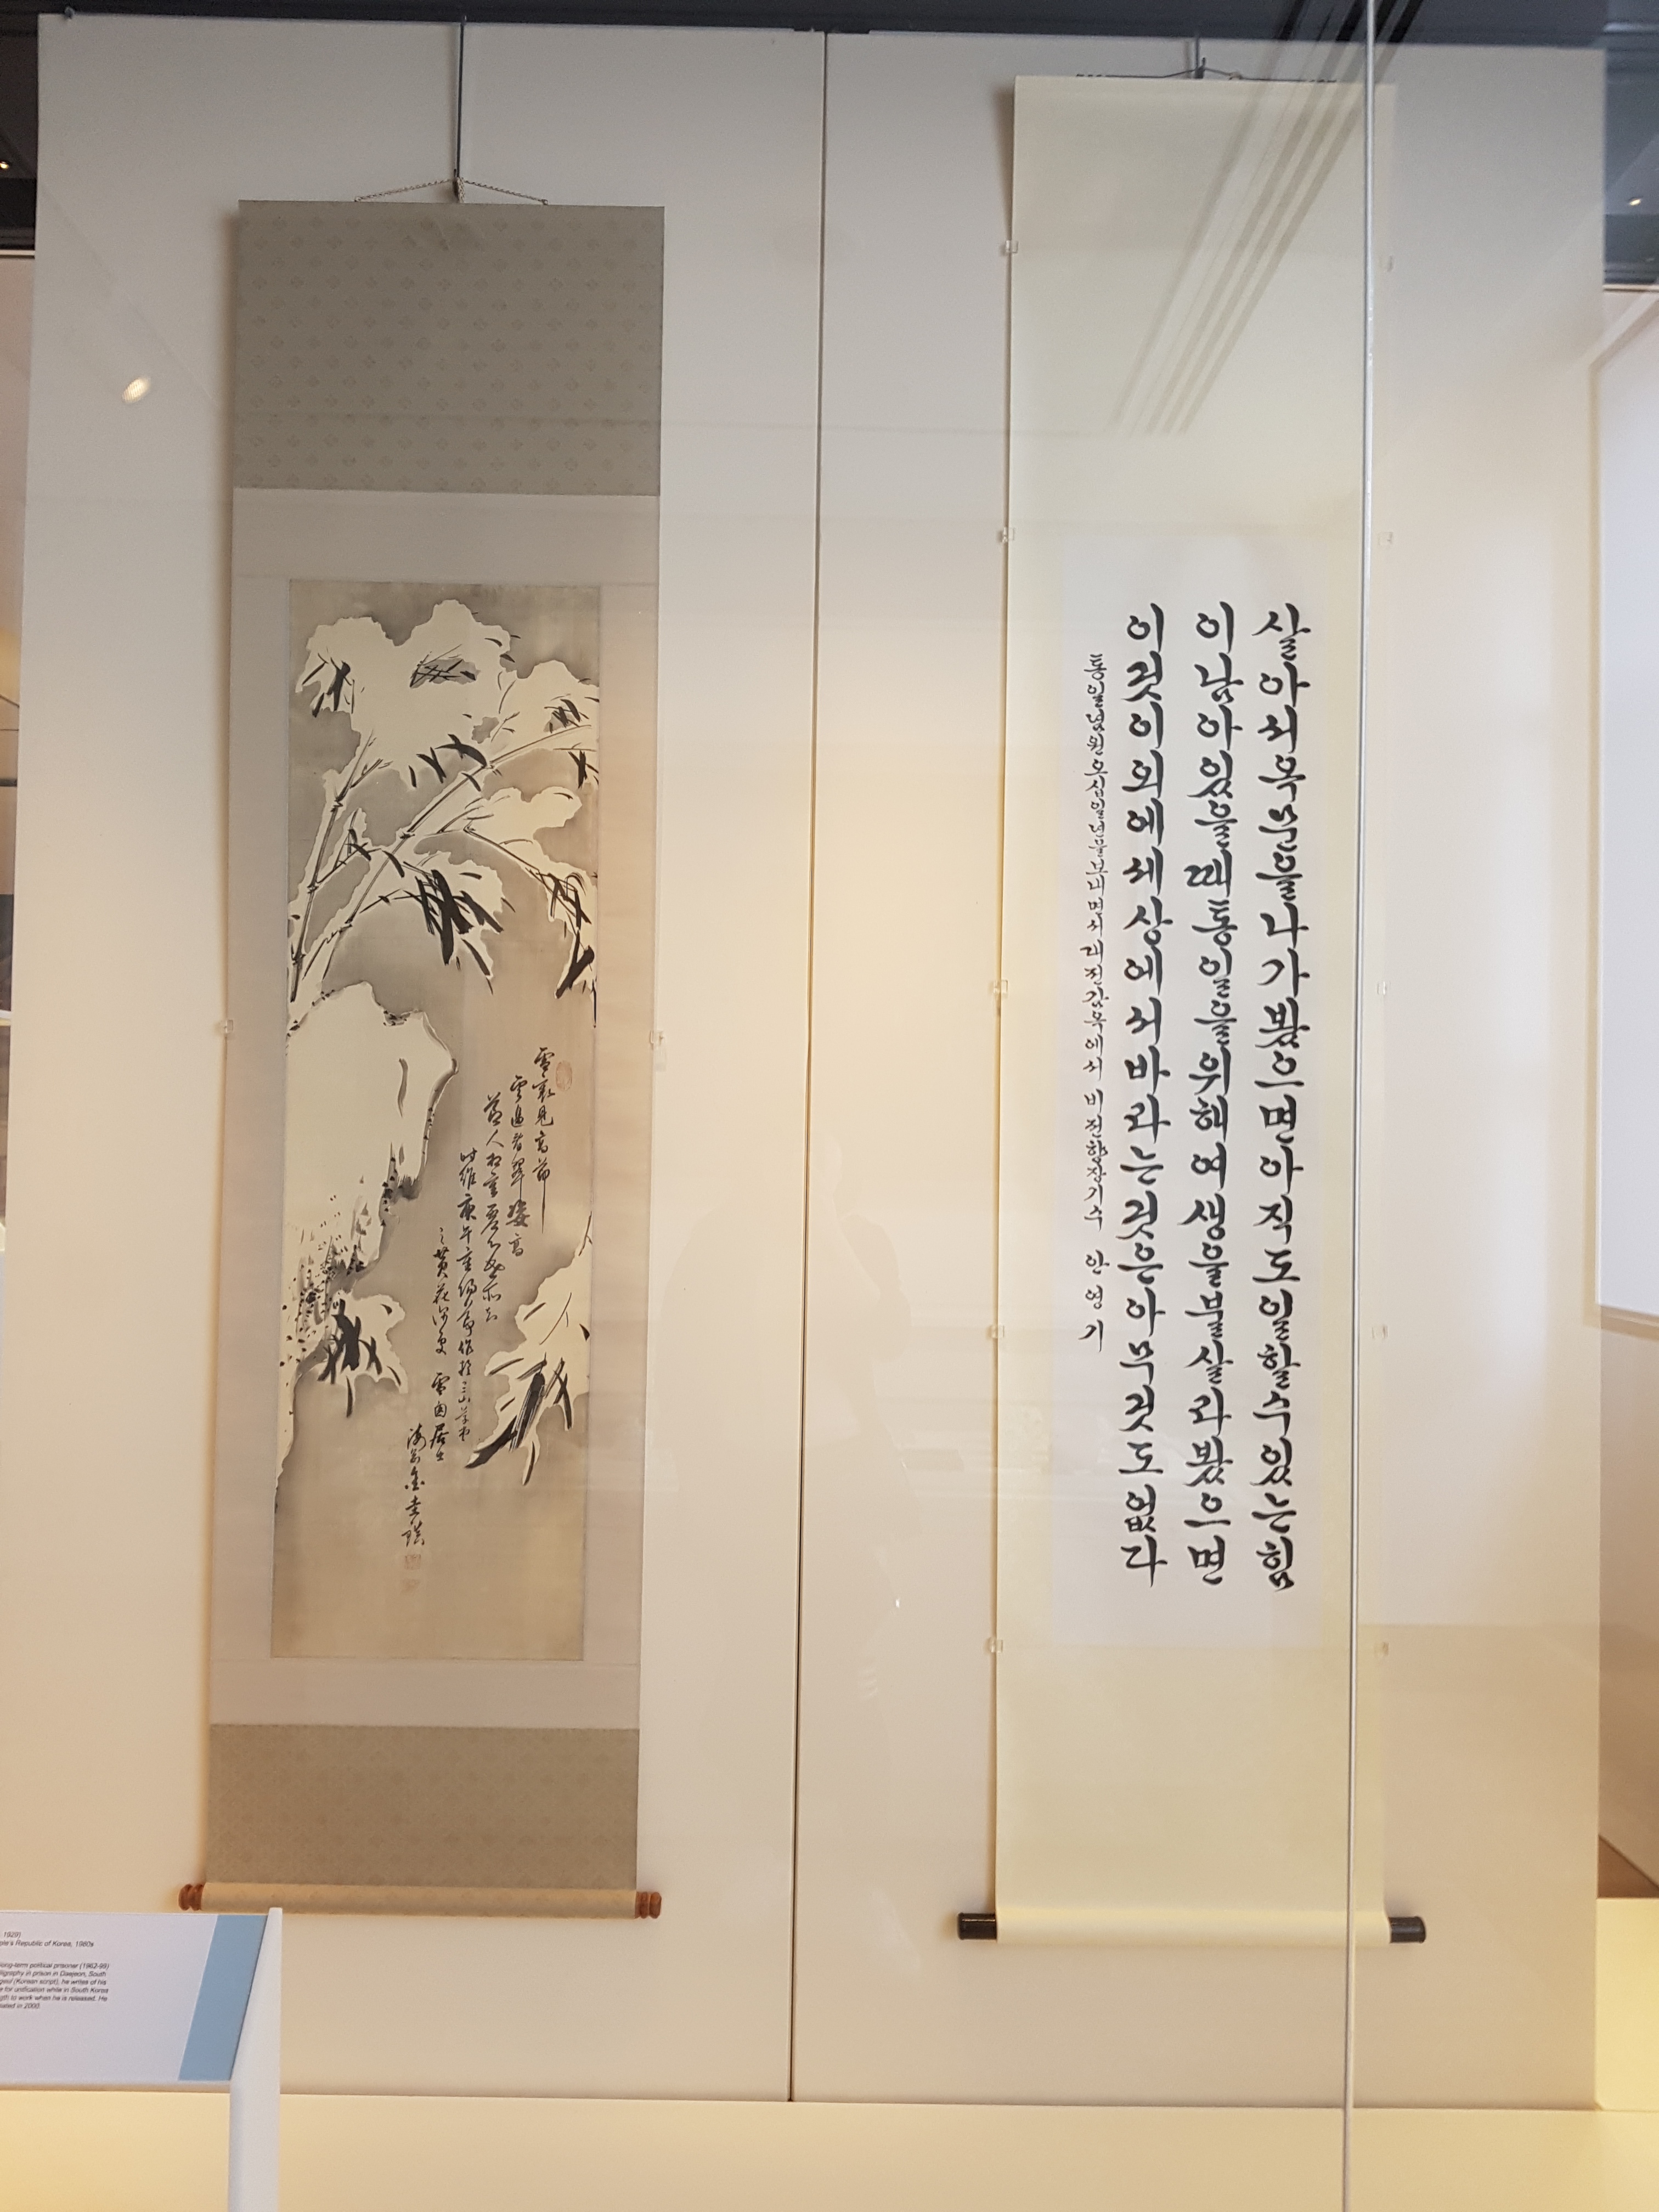 雪裏見高節
時維庚午重陽節作於三
之黃花 居士
海岡金圭鎮
살아서옥문을나가봤으면아직도일할수있는힘
이남아있을때통일을위해여생을불살라봤으면
이것이외에세상에서바라는것은아무것도없다
통일념원오십일년을보내면서대전감옥에서 비전향장기수 안영기
1929)
ple's Republic of Korea, 1980s
long-term political prisoner (1962-99)
ligraphy in prison in Daejeon, South
geul (Korean script), he writes of his
e for unification while in South Korea
gth to work when he is released. He
ated in 2000.